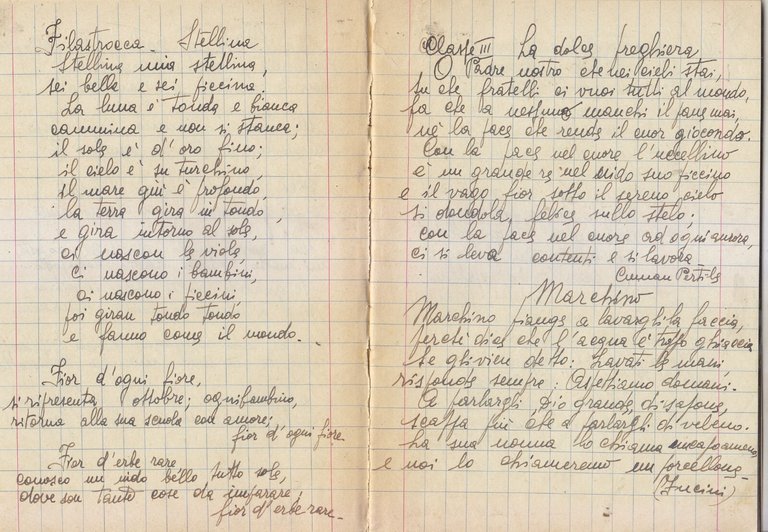 Filastrocca - Stellina
Stellina mia stellina,
sei bella e sei piccina.
La luna è tonda e bianca
cammina e non si stanca;
il sole è d'oro fino;
il cielo è su turchino,
il mare giù è profondo,
la terra gira in tondo
e gira intorno al sole,
ci nascon le viole,
ci nascono i bambini,
ci nascono i piccini,
poi giran tondo tondo
e fanno come il mondo.
Fior d'ogni fiore,
si ripresenta ottobre; ogni bambino,
ritorna alla sua scuola con amore;
fior d'ogni fiore.
Fior d'erbe rare
conosco un nido bello tutto sole,
dove son tante cose da imparare;
fior d'erbe rare.
Classe III La dolce preghiera
O Padre nostro che nei cieli stai,
tu che fratelli ci vuoi tutti al mondo,
fa che a nessuno manchi il pane mai,
nè la pace che rende il cuor giocondo.
Con la pace nel cuore l'uccellino
è un grande re nel nido suo piccino
e il vago fior sotto il sereno cielo
si dondola felice sullo stelo;
con la pace nel cuore ad ogni aurora,
ci si leva contenti e si lavora.
Cuman Pertile
Marchino
Marchino piange a lavargli la faccia,
perchè dice che l'acqua è troppo ghiaccia
Se gli vien detto: Lavati le mani,
risponde sempre: Aspettiamo domani.
A parlargli, Dio grande, di sapone,
scappa più che a parlargli di veleno.
La sua nonna lo chiama
e noi lo chiameremo un porcellone
(Fucini)